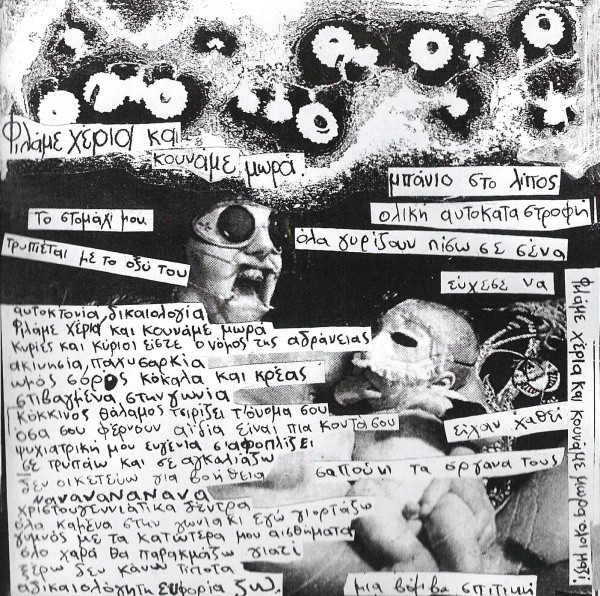 Φιλάμε χέρια και
κουνάμε μωρά.
μπάνιο στο λίπος
το στομάχι μου
ολική αυτοκαταστροφή
τρυπιέται με το οξύ του
όλα γυρίζουν πίσω σε σένα
εύχεσε να
αυτοκτονία, δικαιολογία
φιλάμε χέρια και κουνάμε μωρά
κυρίες και κύριοι είστε ο νόμος της αδράνειας
ακινησία, παχυσαρκία
ωμός σορός κόκαλα και κρέας
στιβαγμένα στην γωνία
κόκκινος θάλαμος τσιρίζει τ' όνομα σου
όσα σου φέρνουν αϊδία είναι πια κοντά σου
ψυχιατρική μου ευγένια σ' αφοπλίζει
σε τρυπάω και σε αγκαλιάζω
δεν οικετεύω για βοήθεια
νανανανανανα
χριστουγεννιάτικα δέντρα
όλα καμένα στην γωνία κι εγώ γιορτάζω
γυμνός με τα κατώτερα μου αισθήματα
όλο χαρά θα παρακμάζω γιατί
ξέρω δεν κάνω τίποτα
αδικαιολόγητη ευφορία ζω.
είχαν χαθεί
σαπούνι τα όργανα τους
μια βόμβα σπιτική
φιλάμε χέρια και κουνάμε μωρά όλοι μαζί!